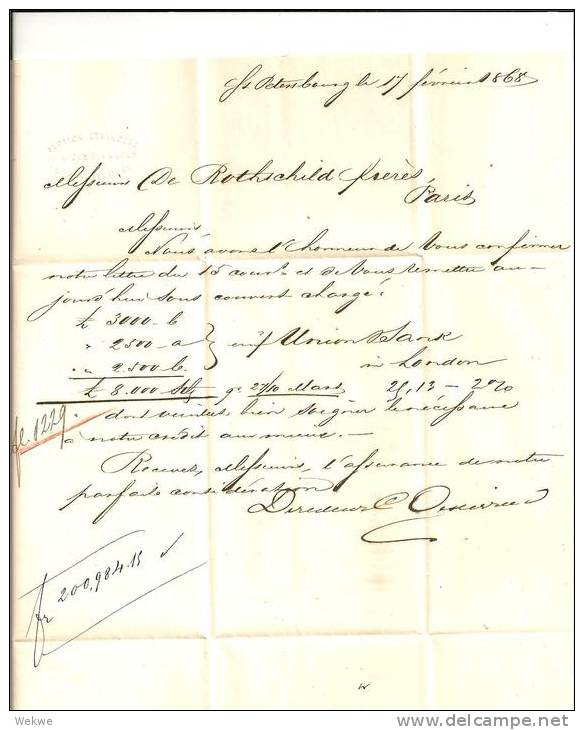 St Petersbourg le 17 février 1868
Messieurs De Rothschild frères,
Paris
Messieurs
Nous avons l'honneur de Vous confirmer
notre lettre du 15 court et de Vous remettre au-
jourd'hui sous couvert chargé:
£ 3000 - b
" 2500 - a } Union Bank
" 2.500 b. in London
£ 8.000 Stg 27/10 Mars 25,13 - 2%
fo. 1229
dont veuillez bien soigner le nécessaire
à notre crédit au mieux. -
Recevez, Messieurs, l'assurance de notre
parfaite considération
Directeur
fr 200,984.15
Wekwe
delcampe.net